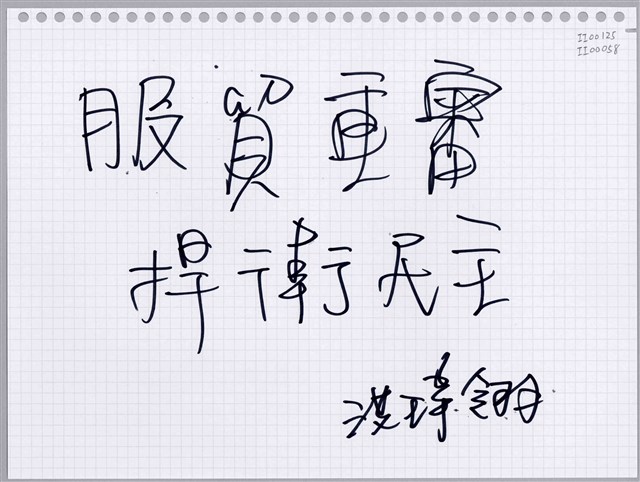 II00125
II00058
服貿重審
捍衛民主